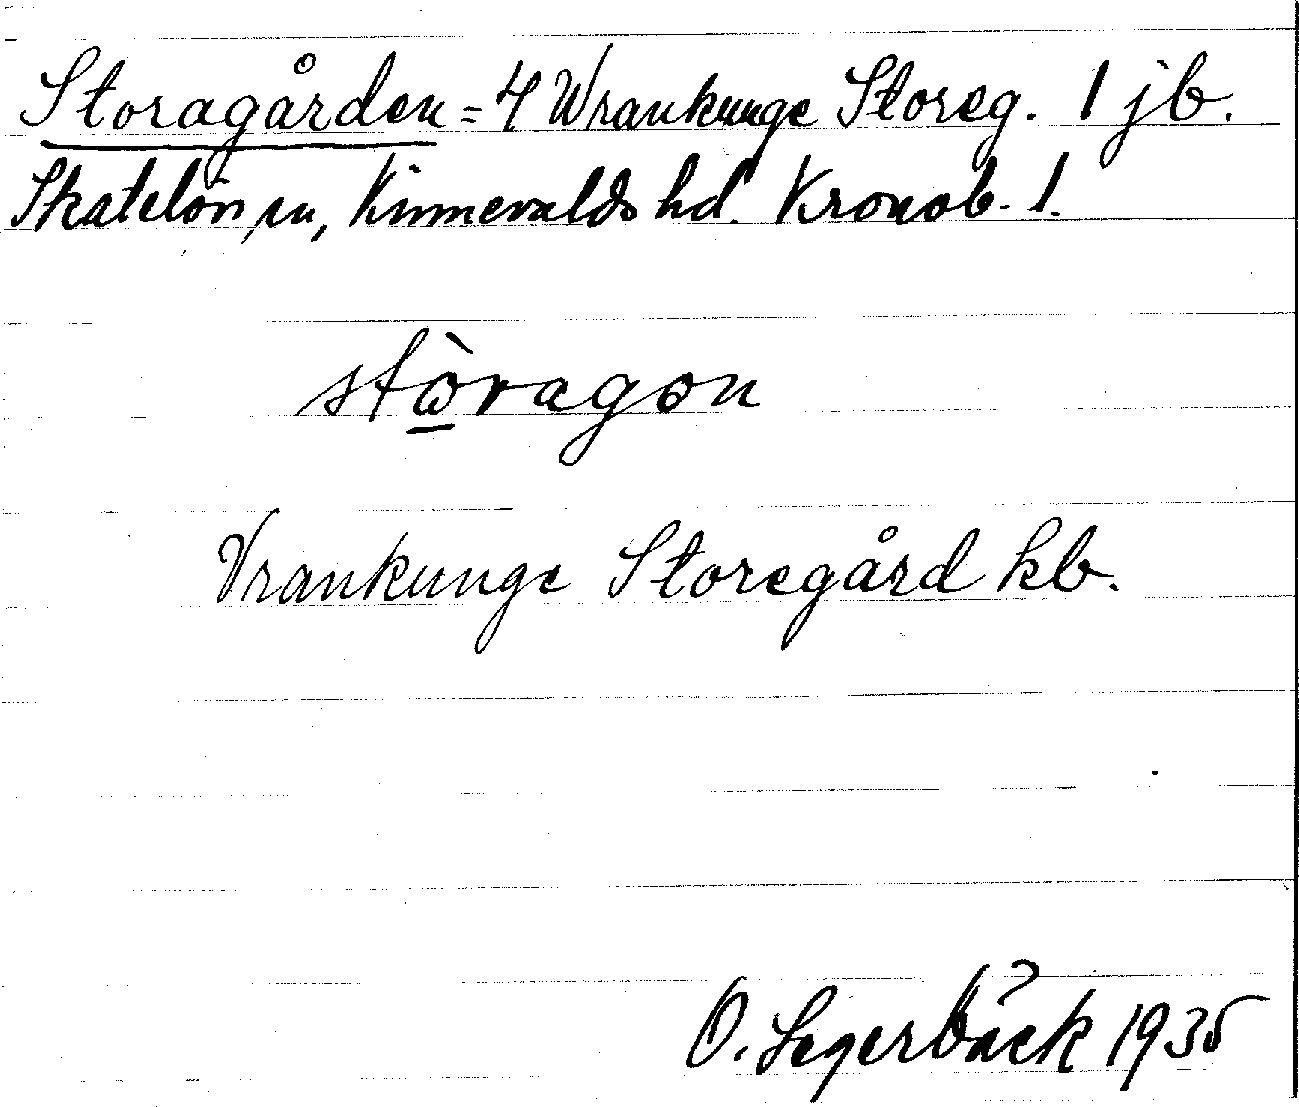 Storagården = 4 Wrankunge Storeg. 1 jb.
Skatelöv sn, Kinnevalds hd. Kronob. l.
stὼragon
Vrankunge Storegård kb.
O. Segerbäck 1935